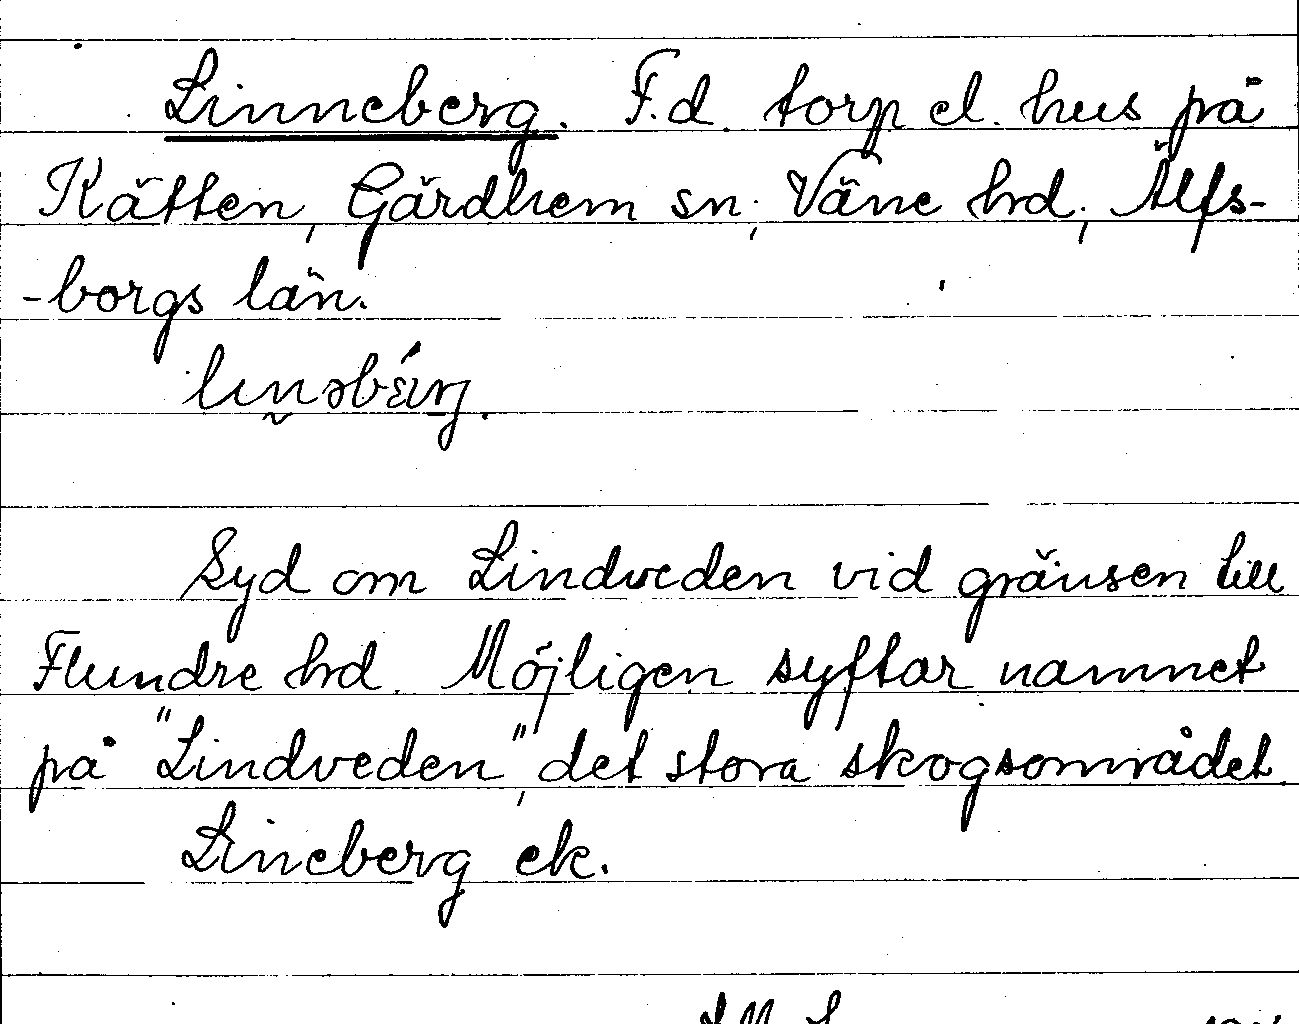 Linneberg. F.d. torp el. hus på
Kätten, Gärdhem sn, Väne hd, Älfs-
-borgs län.
Syd om Lindveden vid gränsen till
Flundre hd. Möjligen syftar namnet
på "Lindveden", det stora skogsområdet.
Lineberg ek.